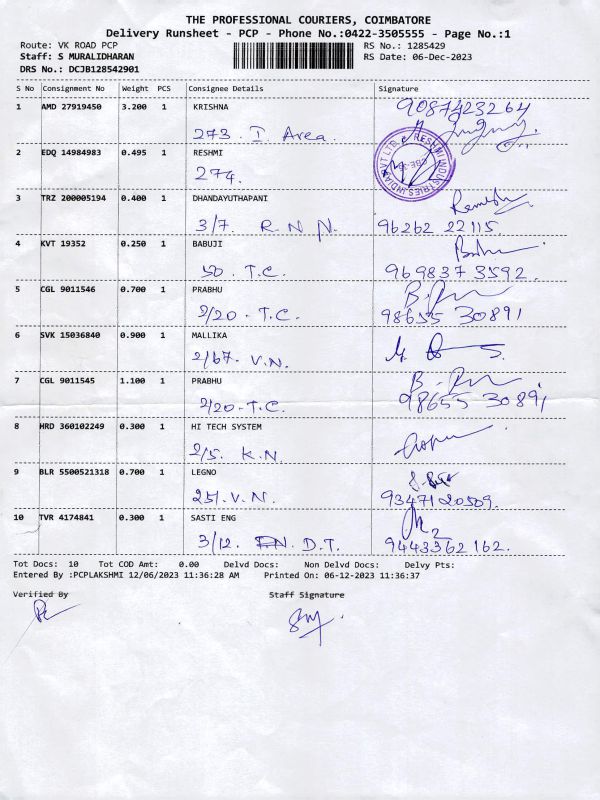 THE PROFESSIONAL COURIERS, COIMBATORE
Delivery Runsheet - PCP - Phone No.:0422-3505555 - Page No.:1
Route: VK ROAD PCP
RS No.: 1285429
Staff: S MURALIDHARAN
RS Date: 06-Dec-2023
DRS No.: DCJB128542901
S No Consignment No Weight PCS Consignee Details Signature
1 AMD 27919450 3.200 1 KRISHNA 9087423264
273. I Area.
2 EDQ 14984983 0.495 1 RESHMI
RESHMI INDUSTRIES INDIA PVT LTD.
274.
3 TRZ 200005194 0.400 1 DHANDAYUTHAPANI Ramesh
3/7. R.N.N. 96262 22115.
4 KVT 19352 0.250 1 BABUJI
50. T.C. 969837 3592.
5 CGL 9011546 0.700 1 PRABHU
2/20. T.C. 98655 30891
6 SVK 15036840 0.900 1 MALLIKA
2/67. V.N.
7 CGL 9011545 1.100 1 PRABHU
2/20-T.C. 98655 30891
8 HRD 360102249 0.300 1 HI TECH SYSTEM
2/5. K.N.
9 BLR 5500521318 0.700 1 LEGNO
251. V.N. 9347120509.
10 TVR 4174841 0.300 1 SASTI ENG
3/12. D.T. 9443362162.
Tot Docs: 10 Tot COD Amt: 0.00 Delvd Docs: Non Delvd Docs: Delvy Pts:
Entered By :PCPLAKSHMI 12/06/2023 11:36:28 AM Printed On: 06-12-2023 11:36:37
Verified By Staff Signature